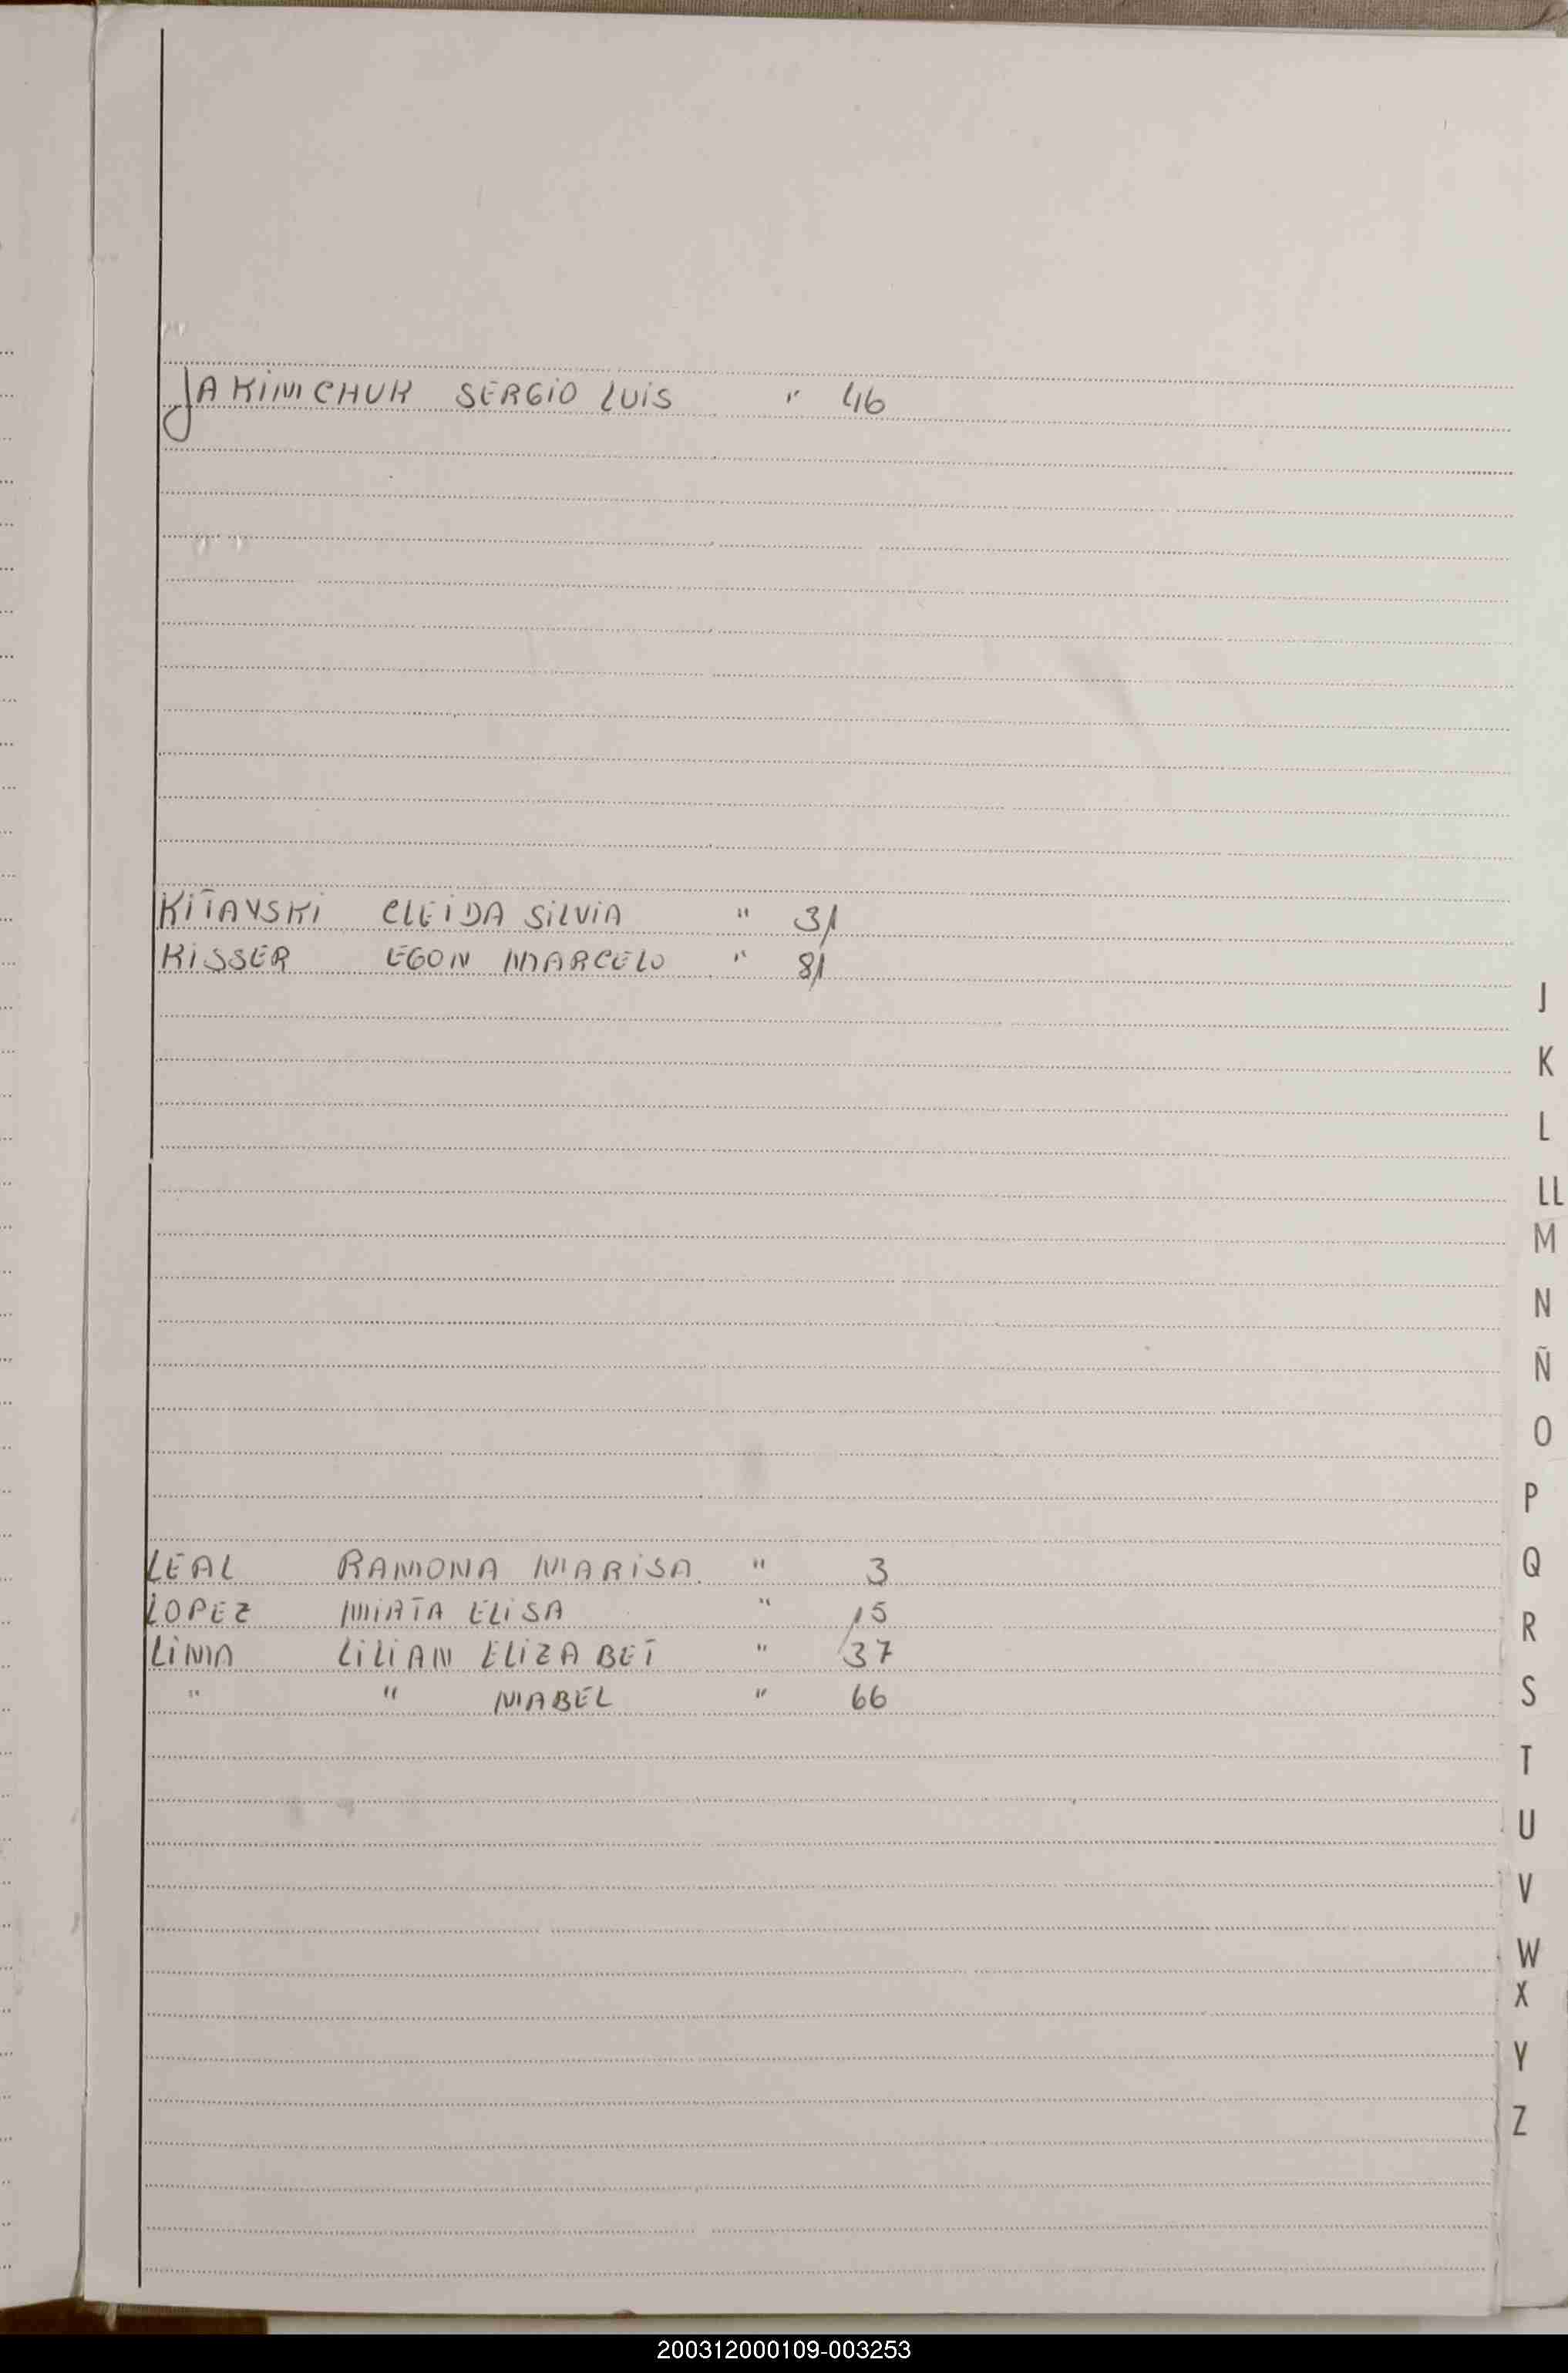 JAKIMCHUK SERGIO LUIS " 46
KITAVSKI CLEIDA SILVIA " 31
KISSER EGON MARCELO " 81
LEAL RAMONA MARISA " 3
LOPEZ MIRTA ELISA " 15
LIMA LILIAN ELIZABET " 37
" " MABEL " 66
J
K
L
LL
M
N
Ñ
O
P
Q
R
S
T
U
V
W
X
Y
Z
200312000109-003253